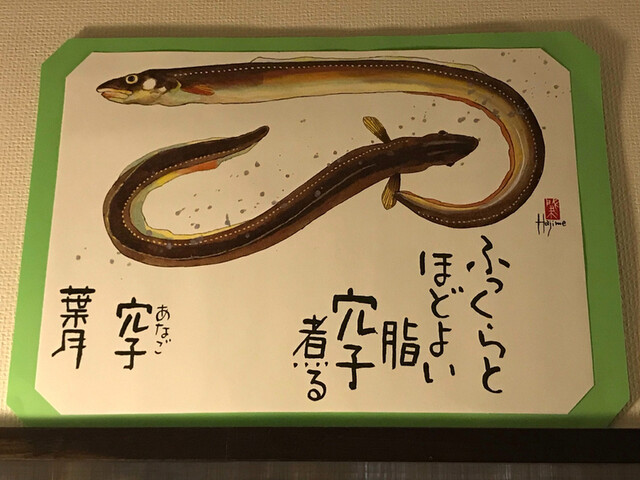 ふっくらと
ほどよい
脂
穴子
煮る
あなご
穴子
葉月
Hajime